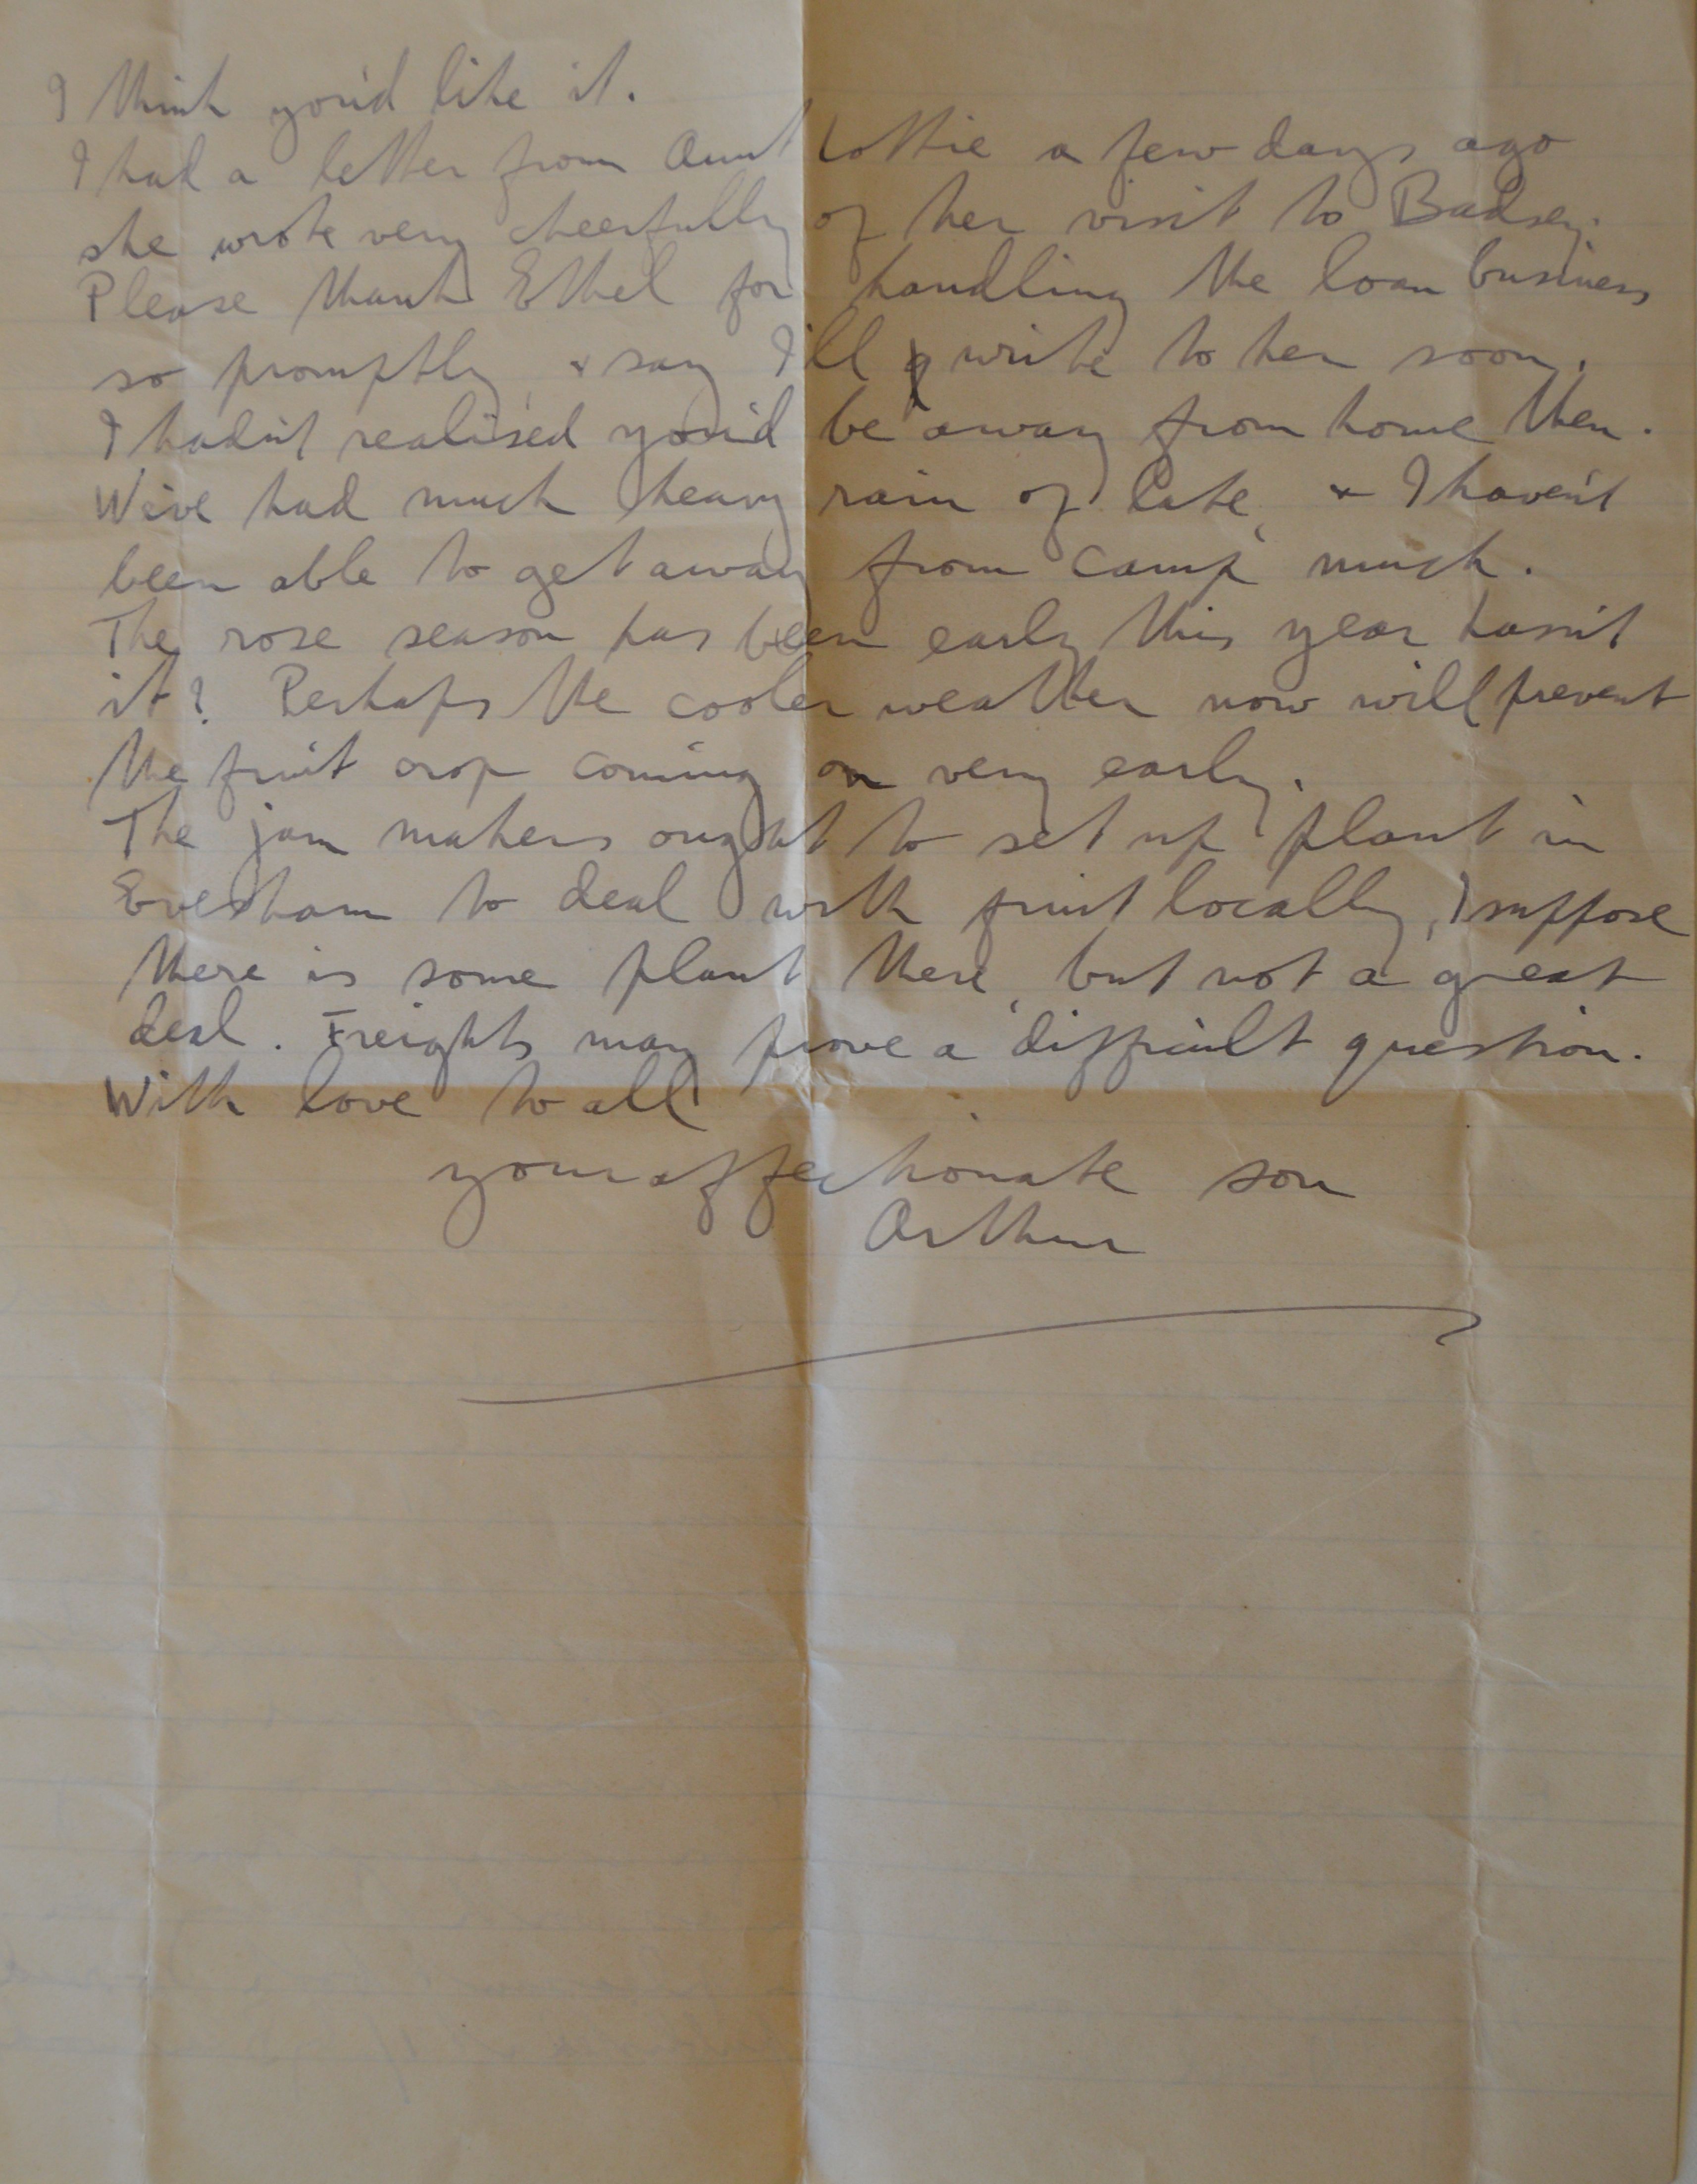 I think you'd like it.
I had a letter from Aunt Lottie a few days ago
she wrote very cheerfully of her visit to Badsey.
Please thank Ethel for handling the loan business
so promptly, & say I'll write to her soon.
I hadn't realised you'd be away from home then.
We've had much heavy rain of late, & I haven't
been able to get away from camp much.
The rose season has been early this year hasn't
it? Perhaps the cooler weather now will prevent
the fruit crop coming on very early.
The jam makers ought to set up plant in
Evesham to deal with fruit locally, I suppose
there is some plant there, but not a great
deal. Freights may prove a difficult question.
With love to all
your affectionate son
Arthur